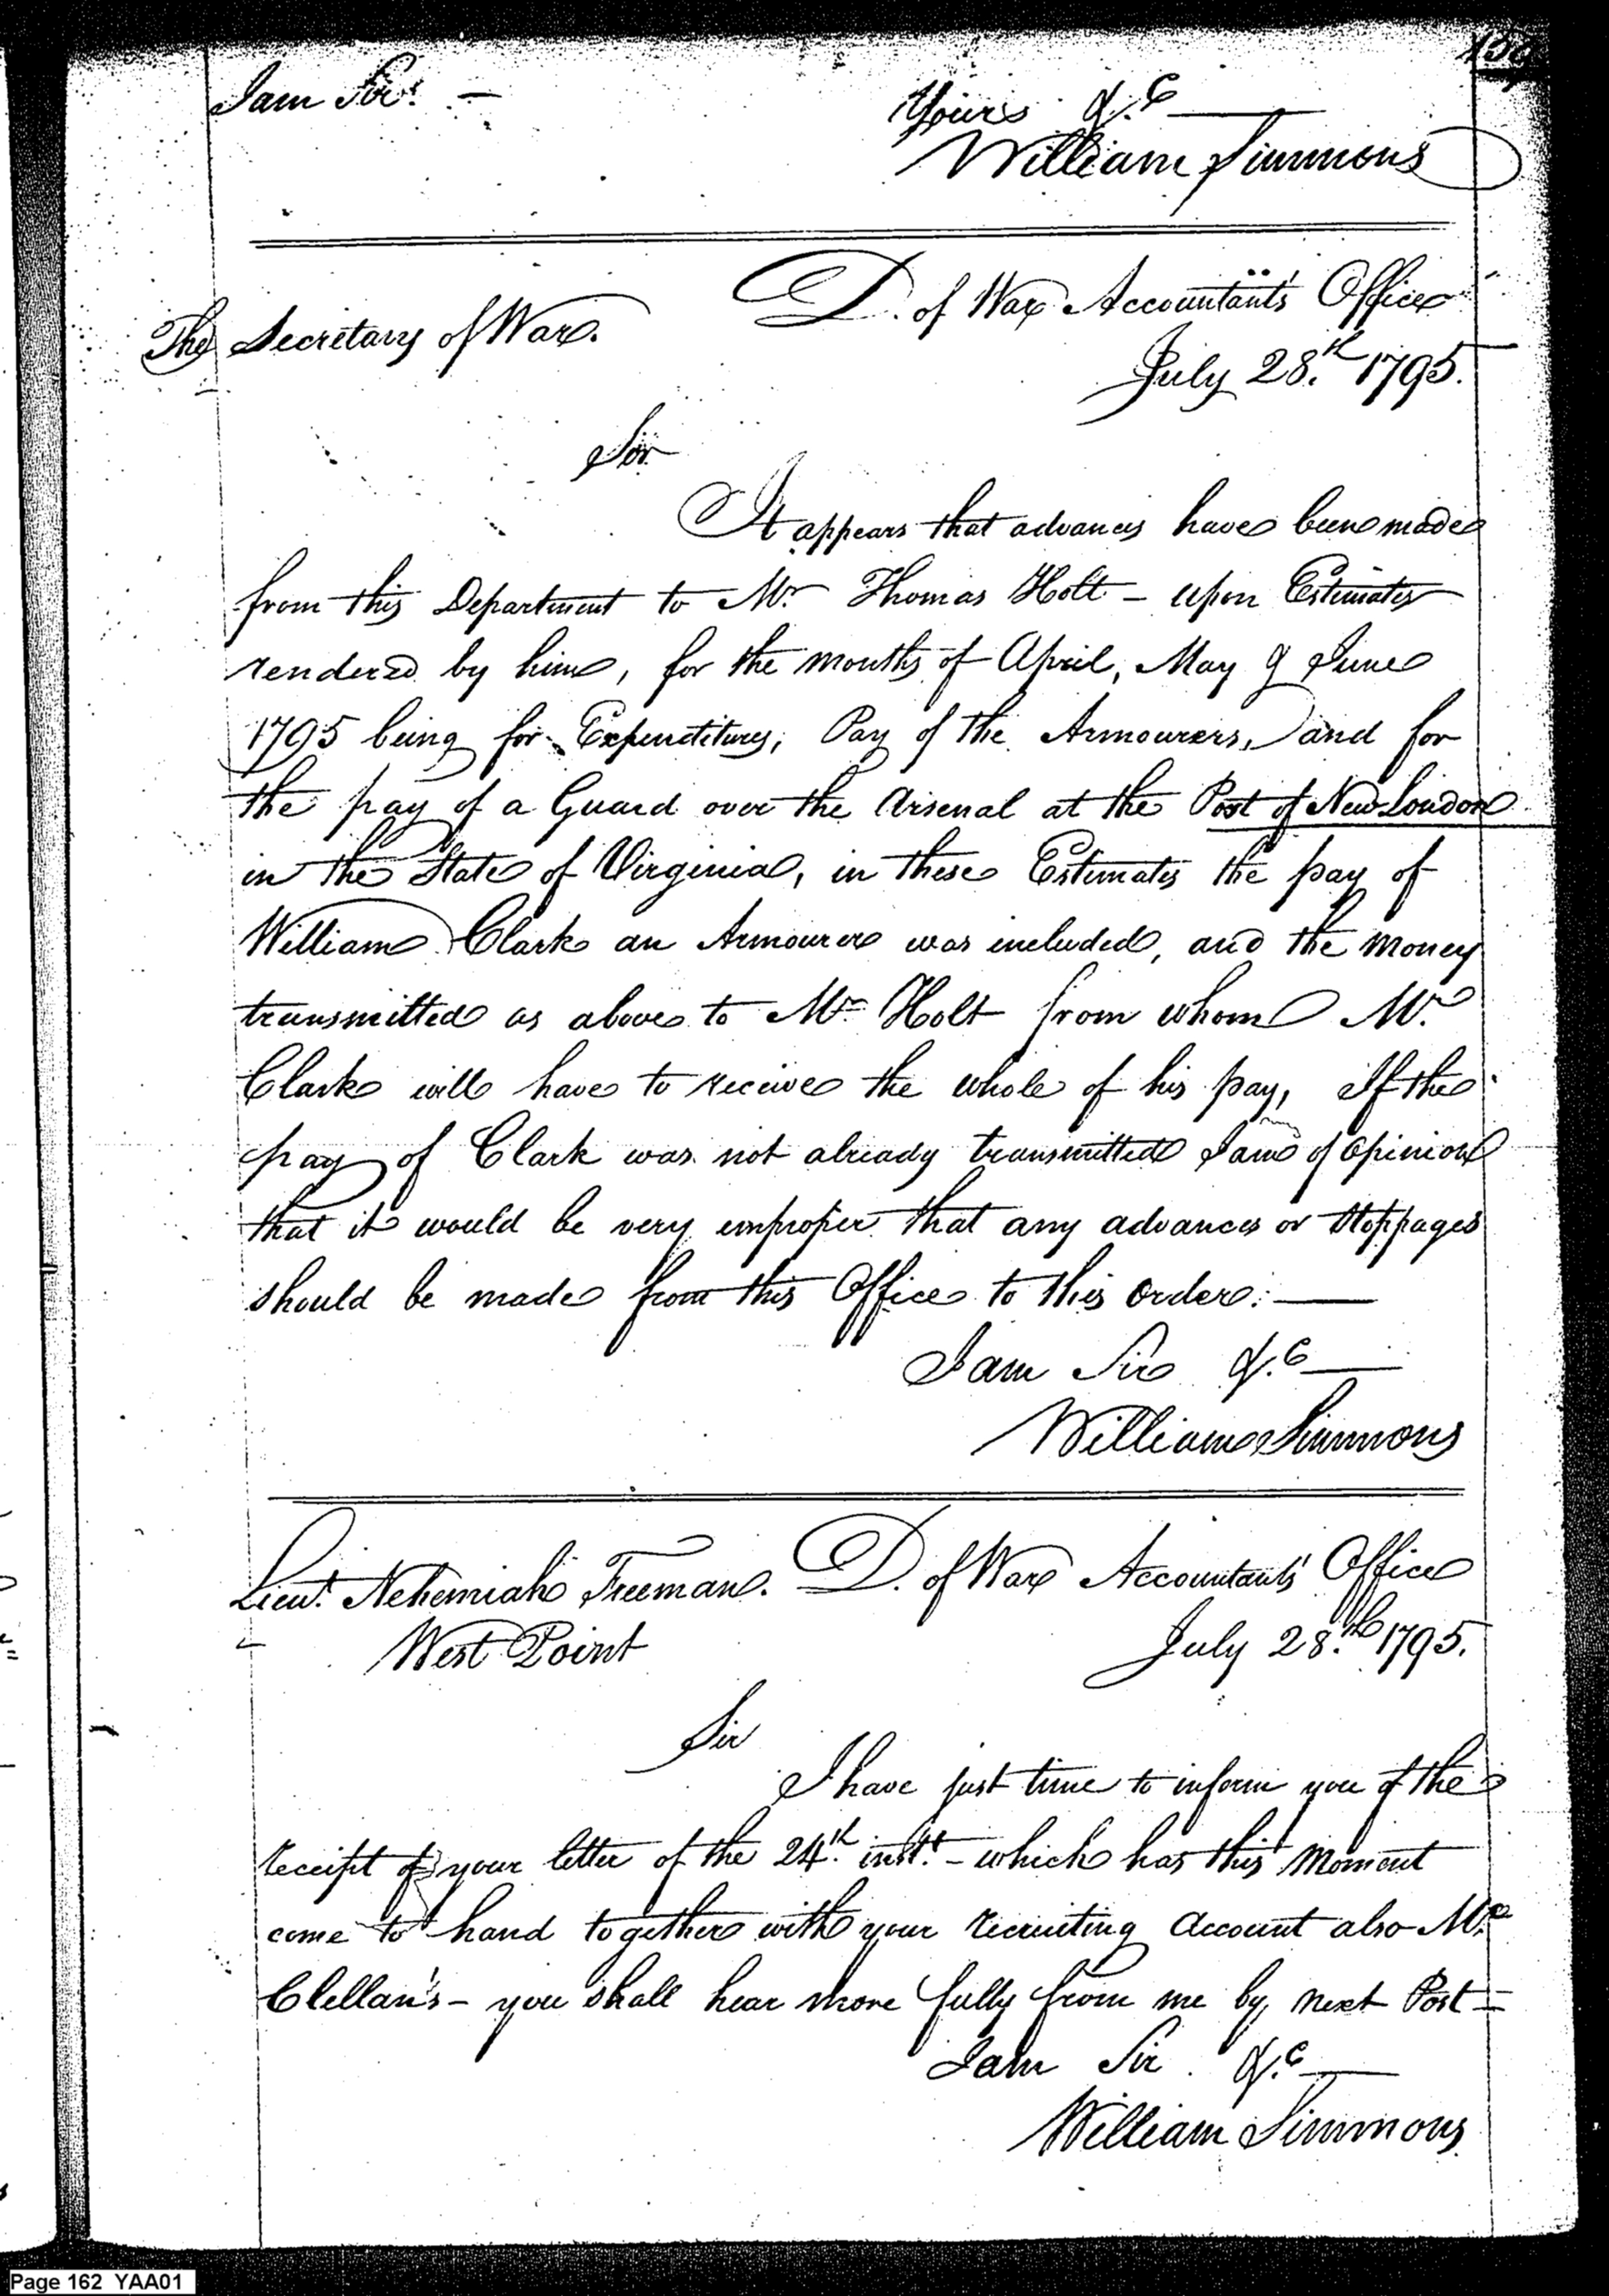 I am Sir. —
Yours &.c —
William Simmons
D. of War Accountant's Office
The Secretary of War.
July 28.th 1795.
Sir
It appears that advances have been made
from this Department to Mr. Thomas Holt — upon Estimates
rendered by him, for the months of April, May & June
1795 being for Expenditures, Pay of the Armourers, and for
the pay of a Guard over the Arsenal at the Post of New London
in the State of Virginia, in these Estimates the pay of
William Clark an Armourer was included, and the money
transmitted as above to Mr. Holt from whom Mr.
Clark will have to receive the whole of his pay, If the
pay of Clark was not already transmitted I am of opinion
that it would be very improper that any advances or stoppages
should be made from this Office to this order: —
I am Sir &.c —
William Simmons
Lieut. Nehemiah Freeman. D. of War Accountants' Office
West Point
July 28.th 1795.
Sir
I have just time to inform you of the
receipt of your letter of the 24.th inst. — which has this moment
come to hand together with your recruiting account also Mc
Clellan's — you shall hear more fully from me by next Post —
I am Sir. &.c —
William Simmons
Page 162 YAA01